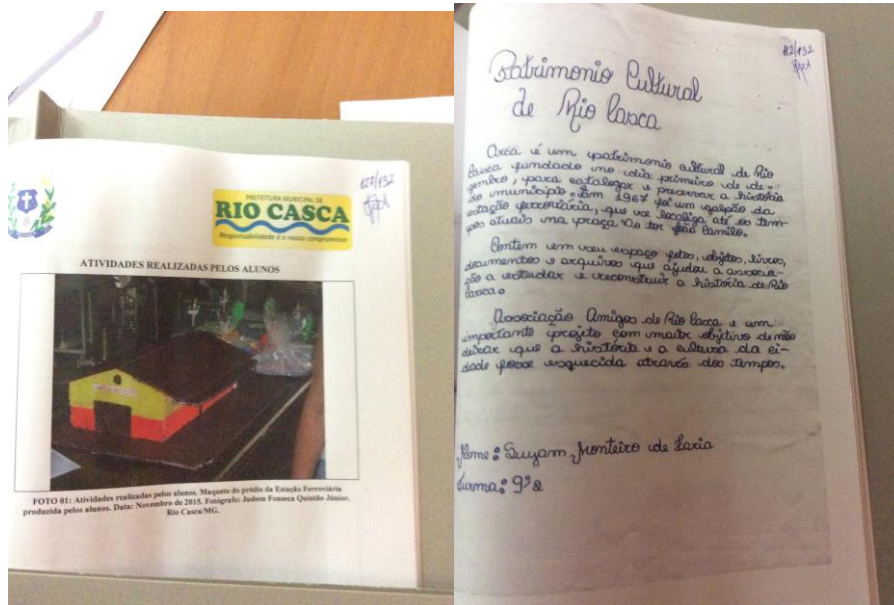 127/132
PREFEITURA MUNICIPAL DE
RIO CASCA
Responsabilidade é o nosso compromisso
ATIVIDADES REALIZADAS PELOS ALUNOS
FOTO 01: Atividades realizadas pelos alunos. Maquete do prédio da Estação Ferroviária
produzida pelos alunos. Data: Novembro de 2015. Fotógrafo: Judson Fonseca Quintão Júnior.
Rio Casca/MG.
82/132
Patrimonio Cultural
de Rio Casca
Arca é um patrimonio cultural de Rio
Casca fundado no dia primeiro de de-
zembro, para catalogar e preservar a história
do município. Em 1967 foi um galpão da
estação ferroviária, que se localiza até os tem-
pos atuais na praça João Camilo.
Contem em seu espaço fotos, objetos, livros,
documentos e arquivos que ajudou a associa-
ção a estudar e reconstruir a história de Rio
Casca.
Associação Amigos de Rio Casca e um
importante projeto com maior objetivo de não
deixar que a história e a cultura da ci-
dade fosse esquecida através dos tempos.
Nome: Suyam Monteiro de Faria
Turma: 9º